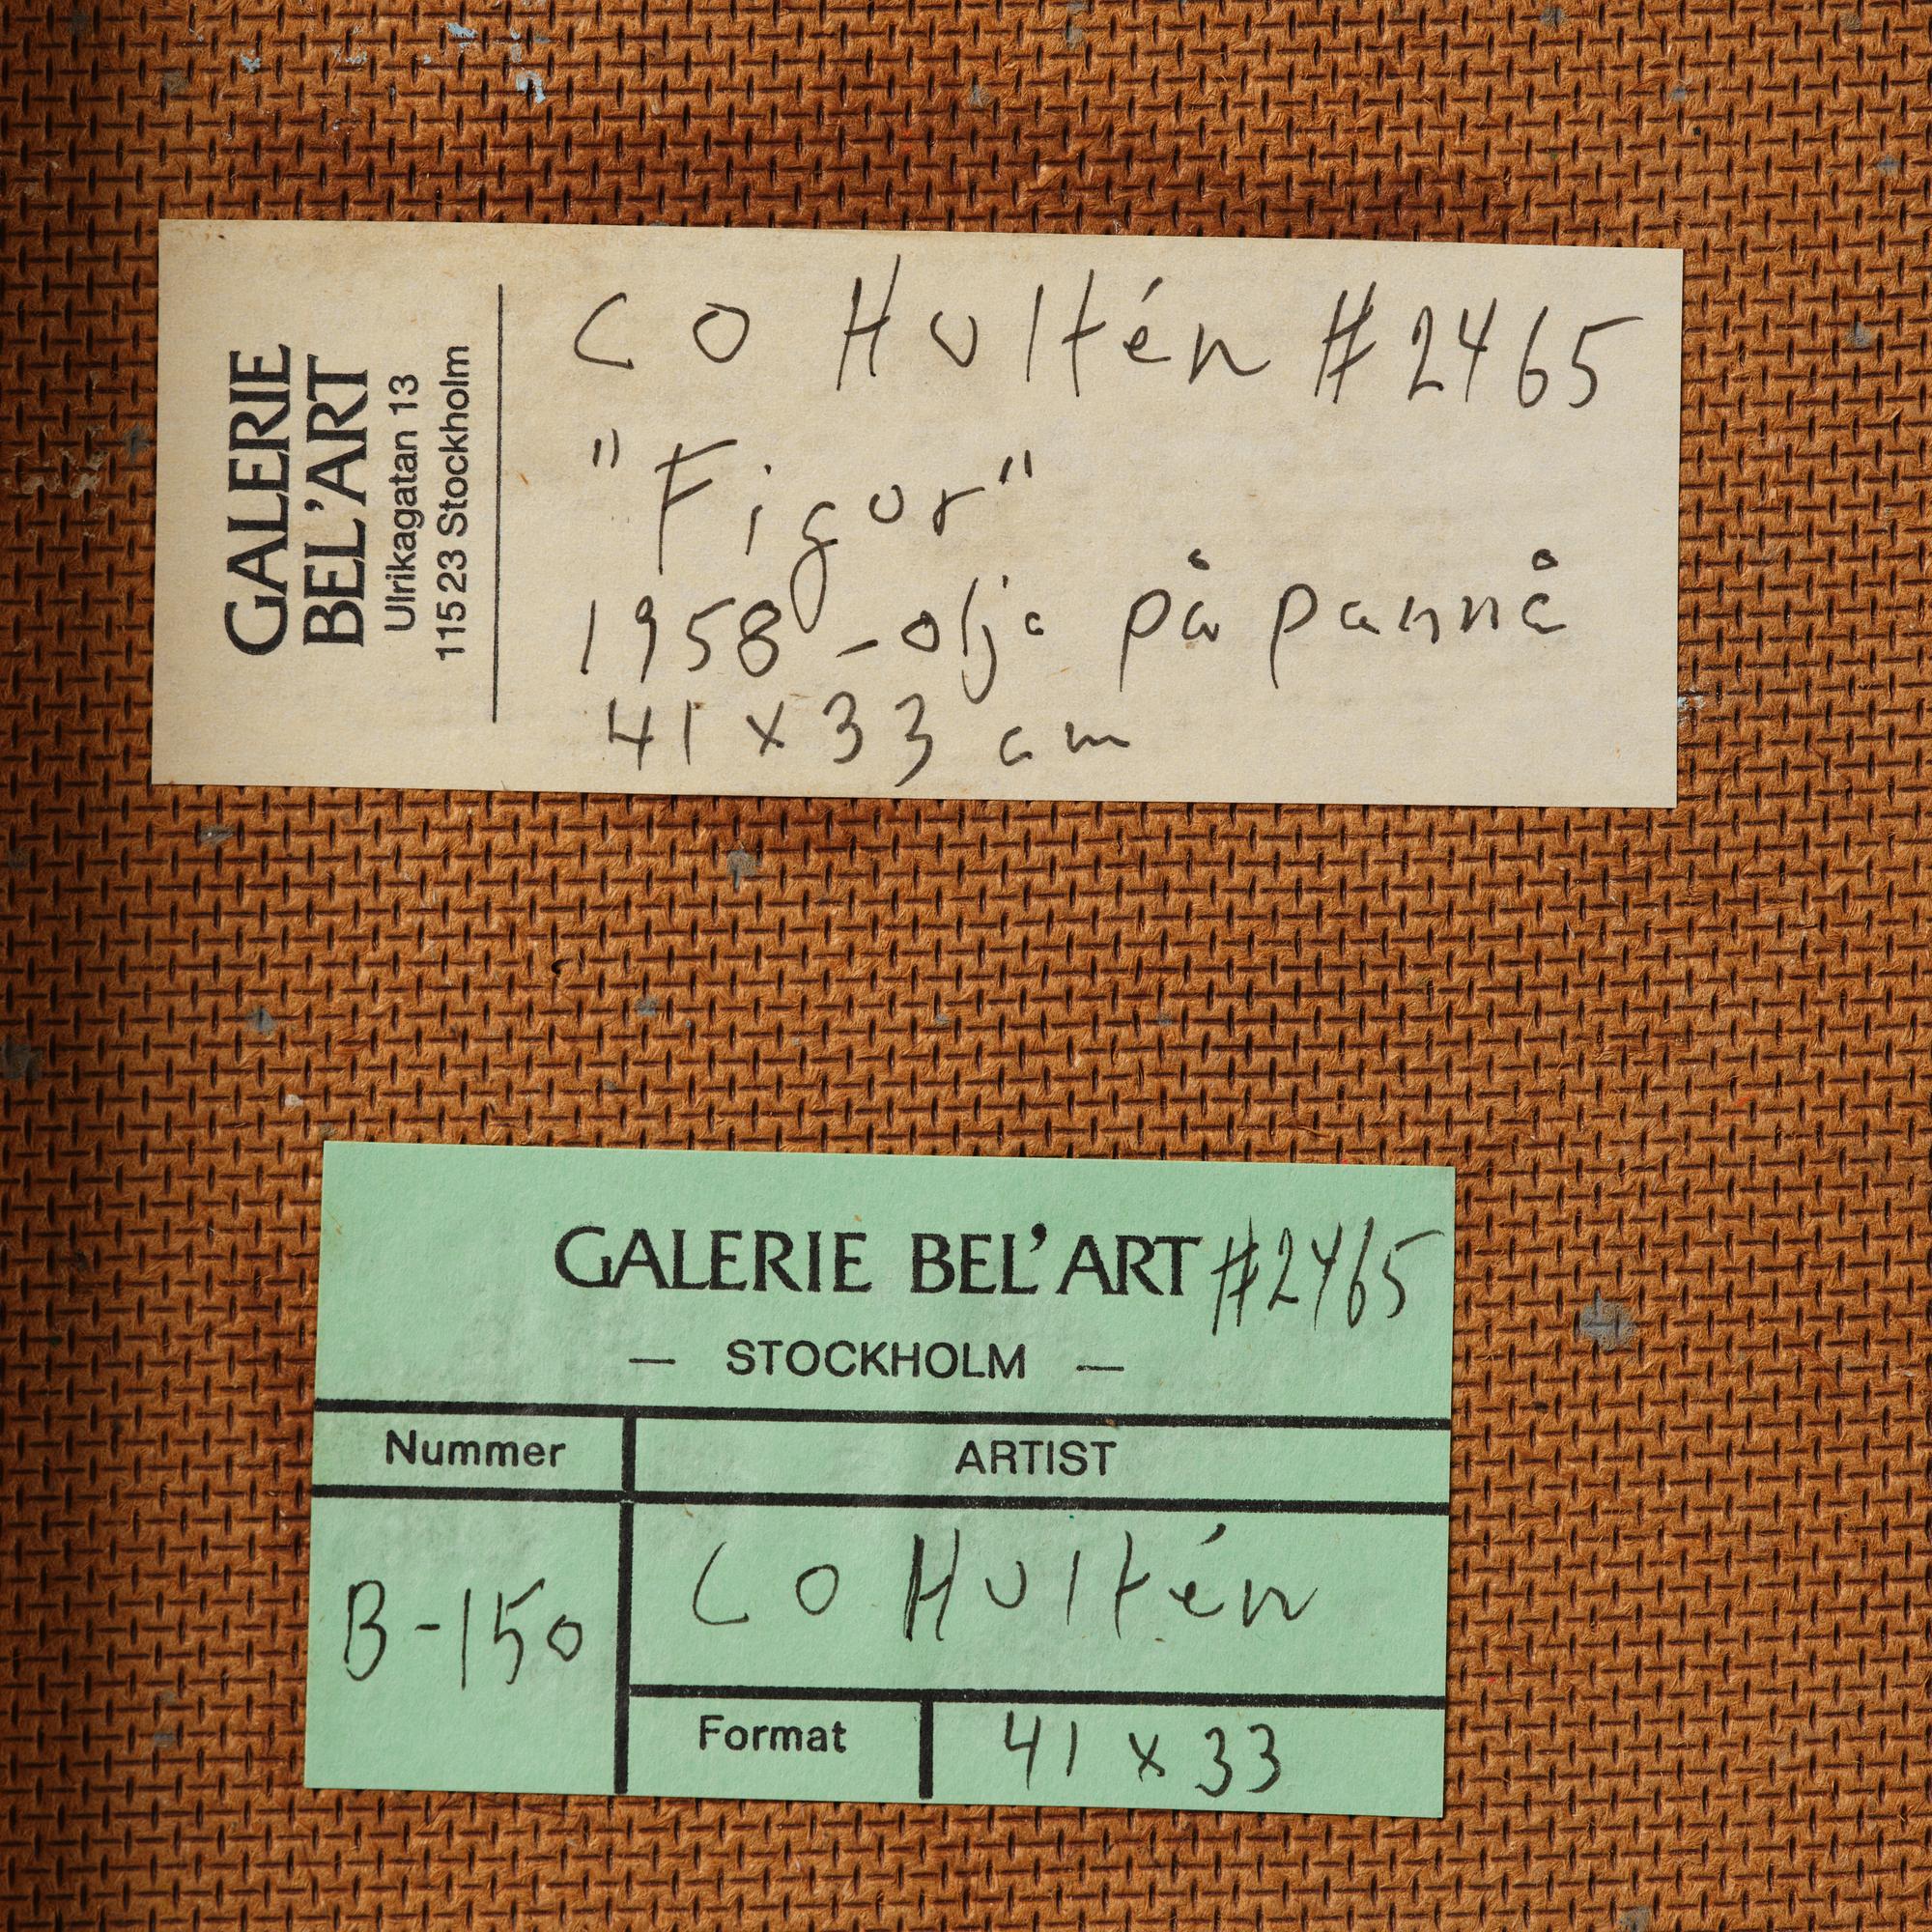 GALERIE
BEL'ART
Ulrikagatan 13
115 23 Stockholm
CO Hultén #2465
"Figur"
1958 - olja på pannå
41 x 33 cm
GALERIE BEL'ART #2465
— STOCKHOLM —
Nummer ARTIST
B-150 CO Hultén
Format 41 x 33